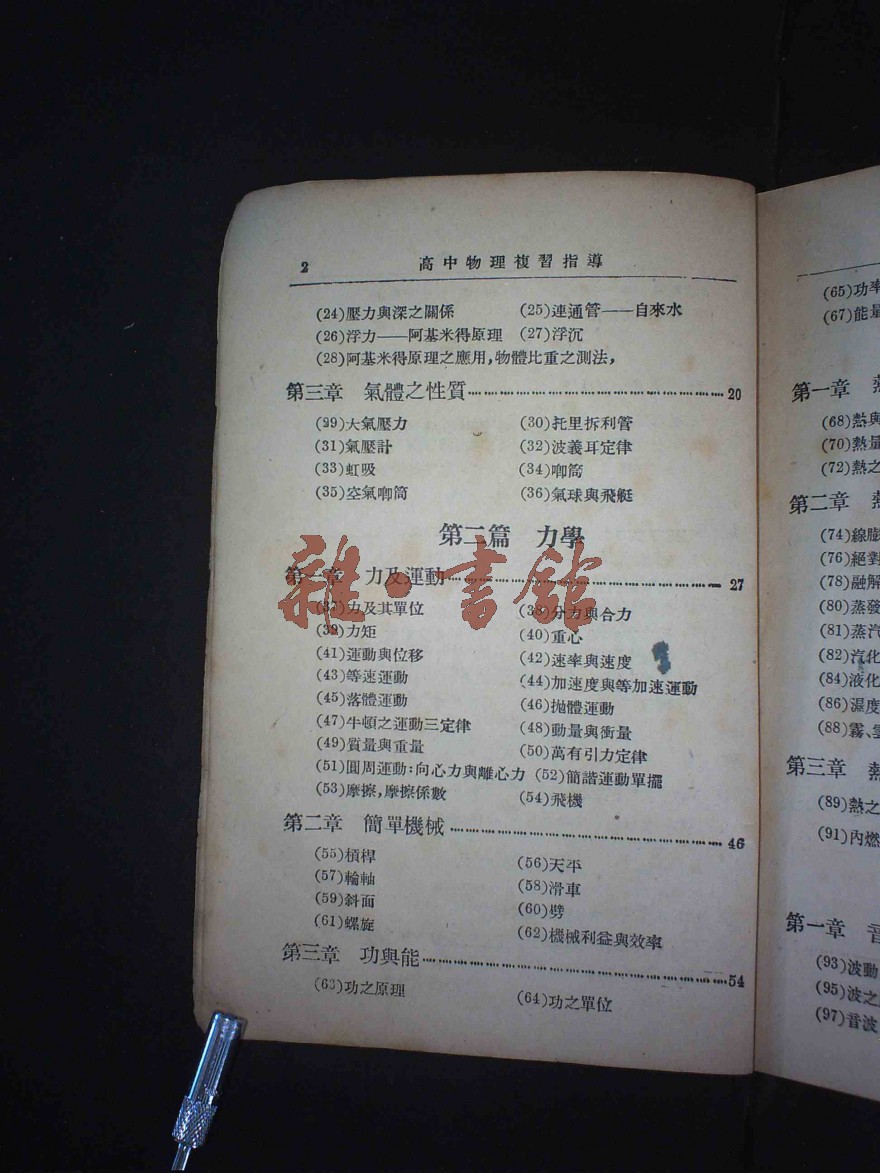 2 高中物理複習指導
(24)壓力與深之關係 (25)連通管——自來水
(26)浮力——阿基米得原理 (27)浮沉
(28)阿基米得原理之應用,物體比重之測法,
第三章 氣體之性質 20
(29)大氣壓力 (30)托里拆利管
(31)氣壓計 (32)波義耳定律
(33)虹吸 (34)唧筒
(35)空氣唧筒 (36)氣球與飛艇
第二篇 力學
第一章 力及運動 27
(37)力及其單位 (38)分力與合力
(39)力矩 (40)重心
(41)運動與位移 (42)速率與速度
(43)等速運動 (44)加速度與等加速運動
(45)落體運動 (46)拋體運動
(47)牛頓之運動三定律 (48)動量與衝量
(49)質量與重量 (50)萬有引力定律
(51)圓周運動:向心力與離心力 (52)簡諧運動單擺
(53)摩擦,摩擦係數 (54)飛機
第二章 簡單機械 46
(55)槓桿 (56)天平
(57)輪軸 (58)滑車
(59)斜面 (60)劈
(61)螺旋 (62)機械利益與效率
第三章 功與能 54
(63)功之原理 (64)功之單位
雜·書館
(65)功率
(67)能量
第一章
(68)熱與
(70)熱量
(72)熱之
第二章
(74)線膨
(76)絕對
(78)融解
(80)蒸發
(81)蒸汽
(82)汽化
(84)液化
(86)濕度
(88)霧、
第三章
(89)熱之
(91)內燃
第一章 音
(93)波動
(95)波之
(97)音波